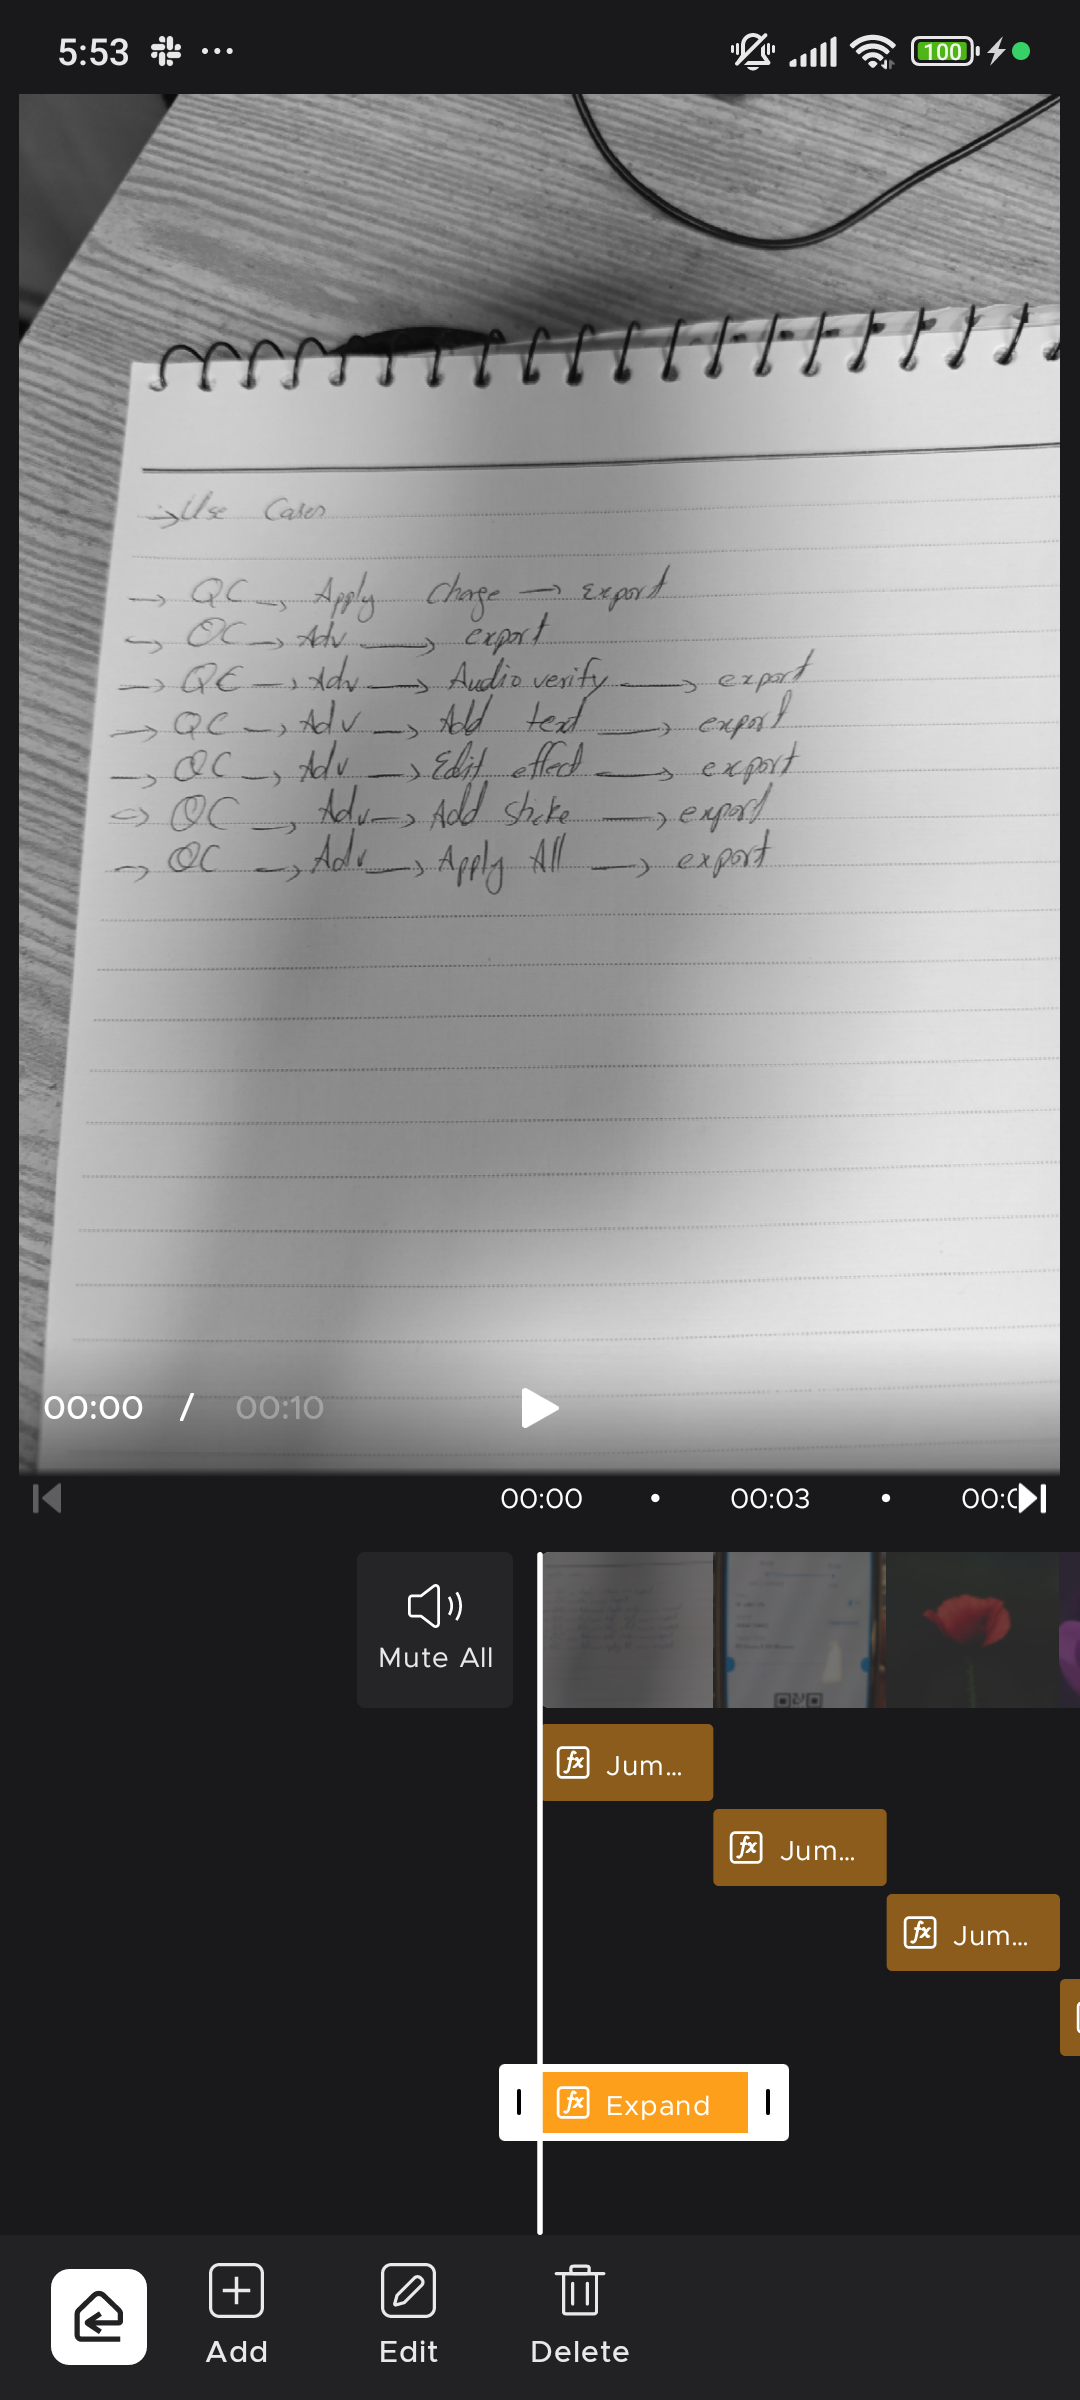 5:53
100
→ Use Cases
→ QC → Apply Change → Export
→ QC → Adv → export
→ QC → Adv → Audio verify → export
→ QC → Adv → Add text → export
→ QC → Adv → Edit effect → export
→ QC → Adv → Add sticke → export
→ QC → Adv → Apply All → export
00:00 / 00:10
00:00 • 00:03 •
Mute All
fx Jum...
fx Jum...
fx Jum...
fx Expand
Add Edit Delete